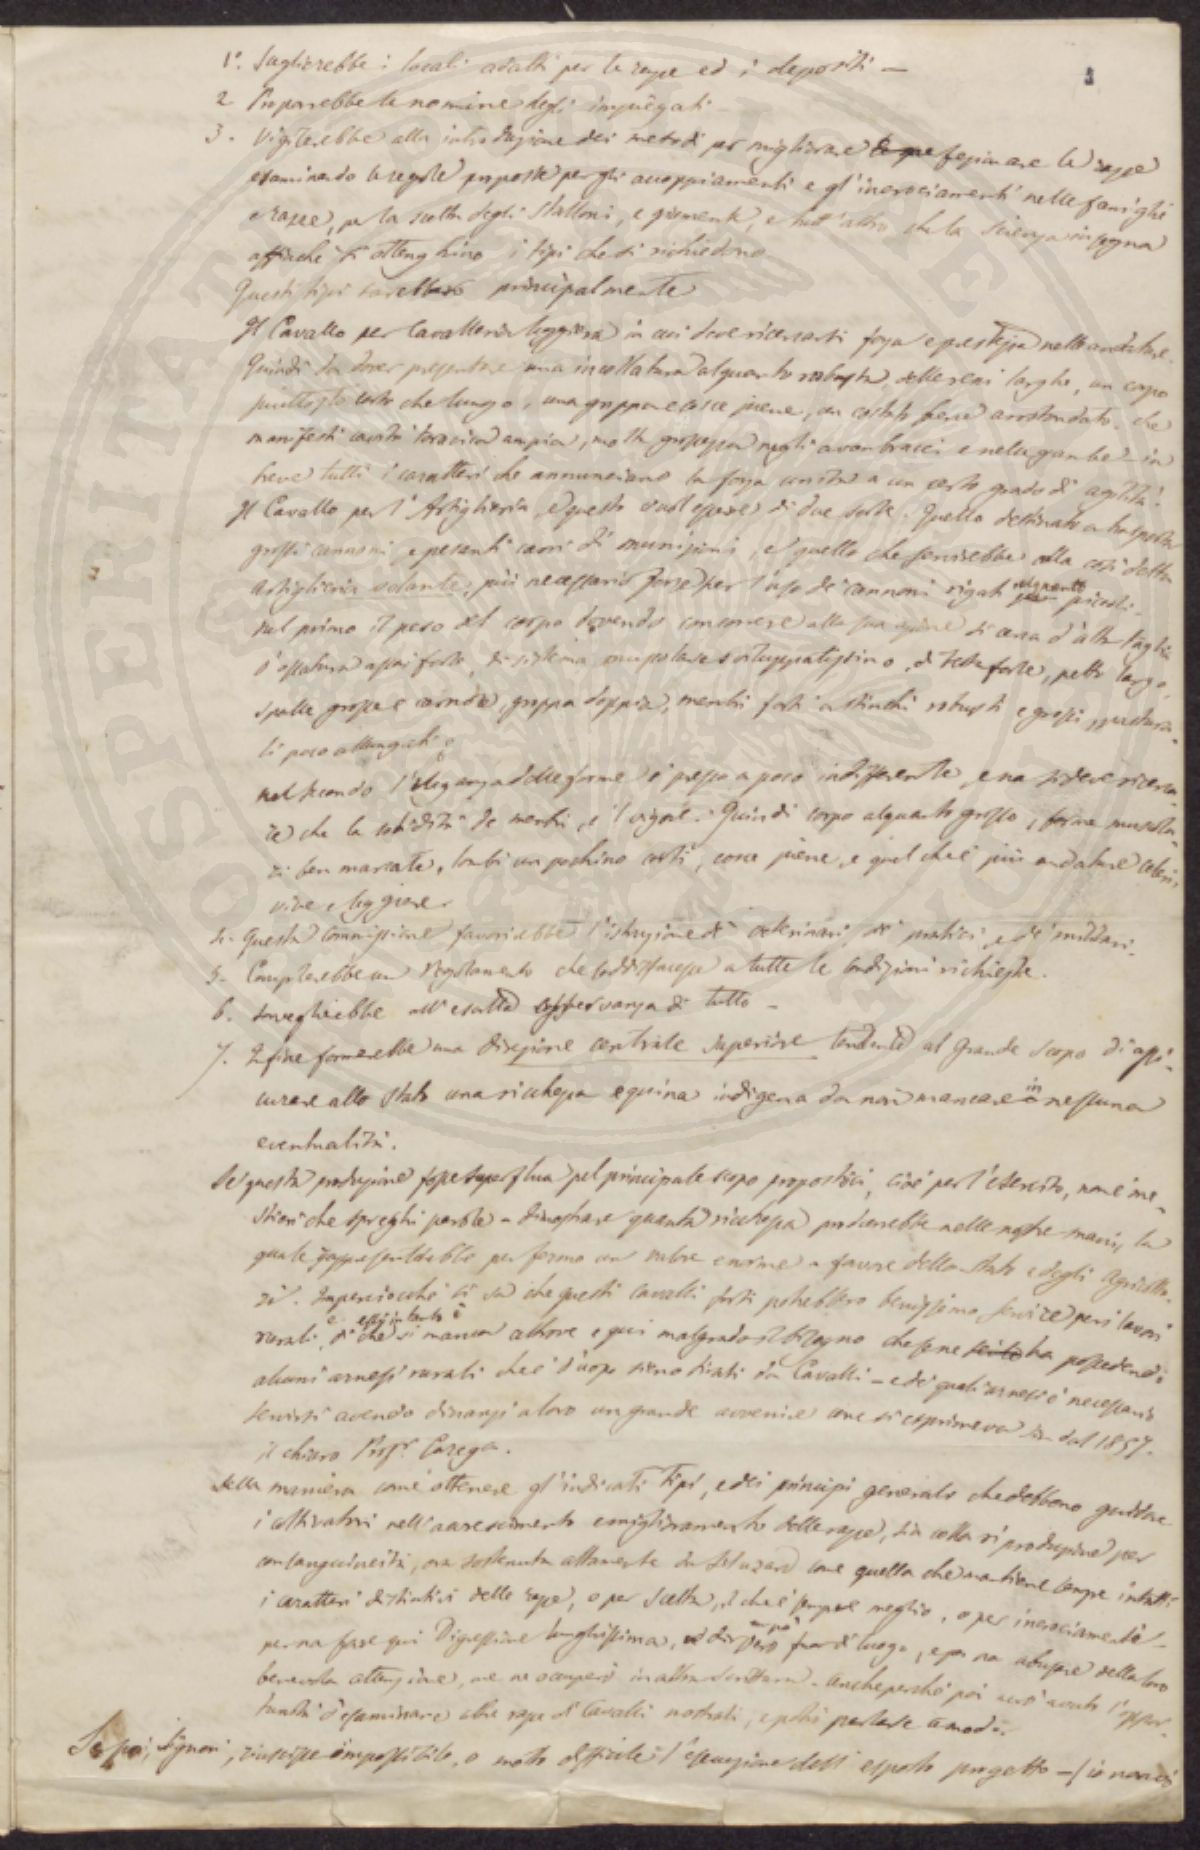 1º. Sceglierebbe i locali adatti per le razze ed i depositi —
2 Proporrebbe le nomine degli impiegati
3. Vigilerebbe alla introduzione dei metodi per migliorare le razze
esaminando le regole proposte per gli accoppiamenti e gl'incrociamenti nelle famiglie
e razze, per la scelta degli stalloni, e giumente, e tutt'altro che la scienza insegna
affinchè si ottenghino i tipi che si richiedono
Questi tipi sarebbero principalmente
Il Cavallo per Cavalleria leggiera in cui deve ricercarsi forza e prestezza nelle andature.
Quindi da dover presentare una incollatura alquanto robusta, delle reni larghe, un corpo
piuttosto corto che lungo, una groppa e cosce piene, un costato bene arrotondato che
manifesti cavità toracica ampia, molta grossezza negli avanbracci e nelle gambe in
breve tutti i caratteri che annunciano la forza unita a un certo grado di agilità.
Il Cavallo per l'Artiglieria, e questo vuol essere di due sorte. Quello destinato a trasportar
grossi cannoni, e pesanti carri di munizioni, e quello che servirebbe alla così detta
artiglieria volante, più necessario forse per l'uso de' cannoni rigati alquanto piccoli.
Nel primo il peso del corpo dovendo concorrere alla sua azione si cerca d'alta taglia
d'ossatura assai forte, di sistema muscolare sviluppatissimo, di testa forte, petto largo,
spalle grosse e carnose, groppa doppia, membri forti a stinchi robusti e grossi, pastura-
li poco allungati.
Nel secondo l'eleganza delle forme è presso a poco indifferente, e na si deve ricerca-
re che la solidità de' membri, e il vigore. Quindi corpo alquanto grosso, forme muscola-
ri ben marcate, lombi un pochino corti, cosce piene, e quel che è più andature celeri,
vive e leggiere.
4. Questa Commissione favorirebbe l'istruzione di veterinari, di pratici, e de' militari.
5. Compilerebbe un Regolamento che soddisfacesse a tutte le condizioni richieste.
6. Sorveglierebbe all'esatta osservanza di tutto —
7. Infine formerebbe una direzione centrale superiore tendente al grande scopo di assi-
curare allo Stato una ricchezza equina indigena da non mancare in nessuna
eventualità.
Se questa produzione fosse superflua pel principale scopo propostoci, cioè per l'esercito, non è me-
stieri che spreghi parole a dimostrare quanta ricchezza produrrebbe nelle nostre mani, la
quale rappresenterebbe per fermo un valore enorme a favore dello Stato e degli Agricolto-
ri. Imperciocchè si sa che questi cavalli forti potrebbero benissimo servire pei lavori
rurali, di che si manca altrove e qui malgrado il bisogno che se ne ha possedendo
alcuni arnesi rurali che è d'uopo sieno tirati da Cavalli — e de' quali arnesi è necessario
servirsi avendo dinanzi a loro un grande avvenire come si esprimeva sin dal 1857.
il chiaro Prof. Carega.
Della maniera come ottenere gl'indicati tipi, e dei principi generali che debbono guidare
i coltivatori nell'accrescimento e miglioramento delle razze, sia colla riproduzione per
consanguineità, ora sostenuta altamente da come quella che mantiene sempre intatti
i caratteri distintivi delle razze, o per scelta, il che è sempre meglio, o per incrociamenti —
per na fare qui Digressione lunghissima, fuor di luogo, e per na abusare della loro
benevola attenzione, me ne occuperò in altra scrittura. Anche perchè poi avrò avuto l'oppor-
tunità d'esaminare altre razze di Cavalli nostrali, e potrò parlare a modo.
Se poi, Signori, riuscisse impossibile, o molto difficile l'esecuzione dell'esposto progetto — (io non ciò